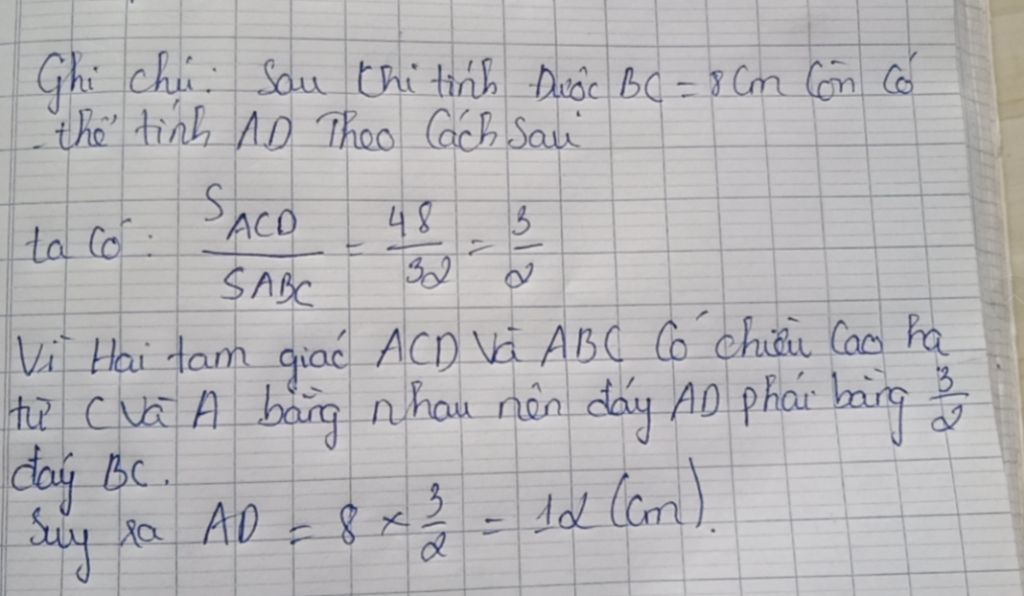 Ghi chú: Sau khi tính Được BC = 8 Cm Còn Có
thể tính AD Theo Cách Sau
ta Có: S ACD / S ABC = 48/32 = 3/2
Vì Hai tam giác ACD Và ABC Có chiều Cao hạ
từ C Và A bằng nhau nên đáy AD phải bằng 3/2
đáy BC.
Suy ra AD = 8 × 3/2 = 12 (Cm).